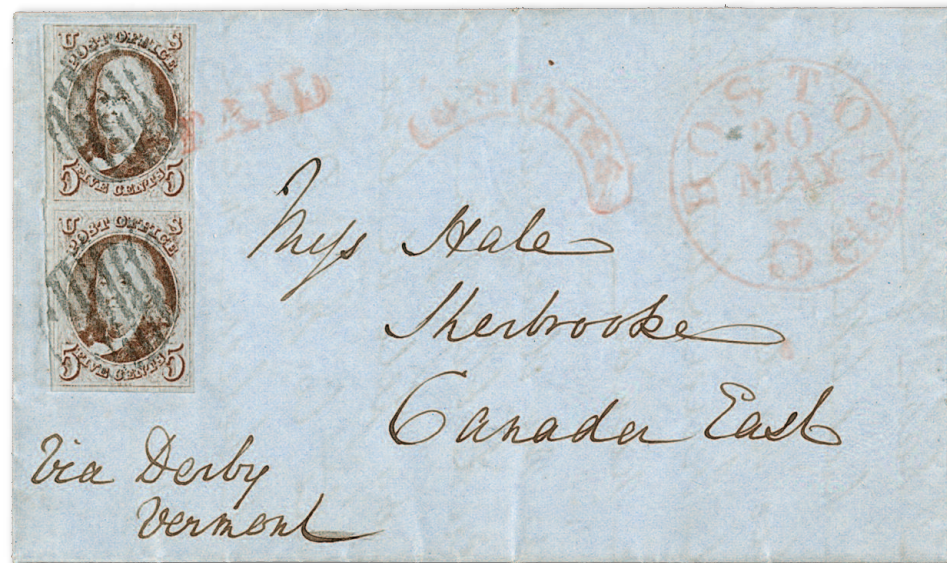 U S
POST OFFICE
5 5
FIVE CENTS
U S
POST OFFICE
5 5
FIVE CENTS
PAID
BOSTON
30
MAY
5
Miss Hale
Sherbrooke
Canada East
Via Derby
Vermont